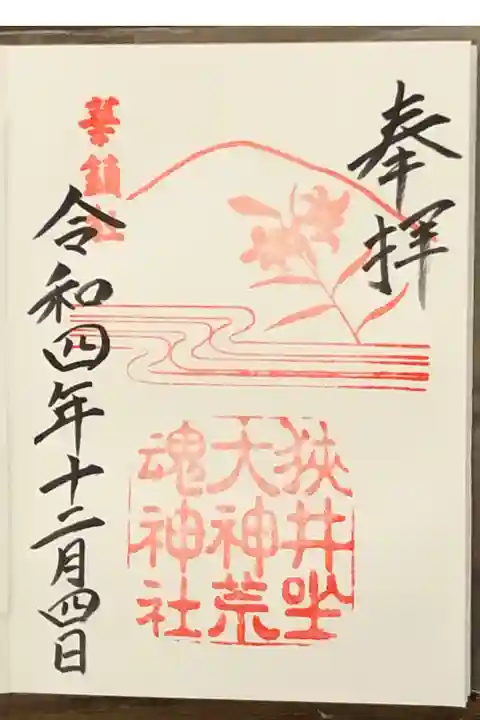 奉拝
狭井坐
大神荒
魂神社
華鎮社
令和四年十二月四日